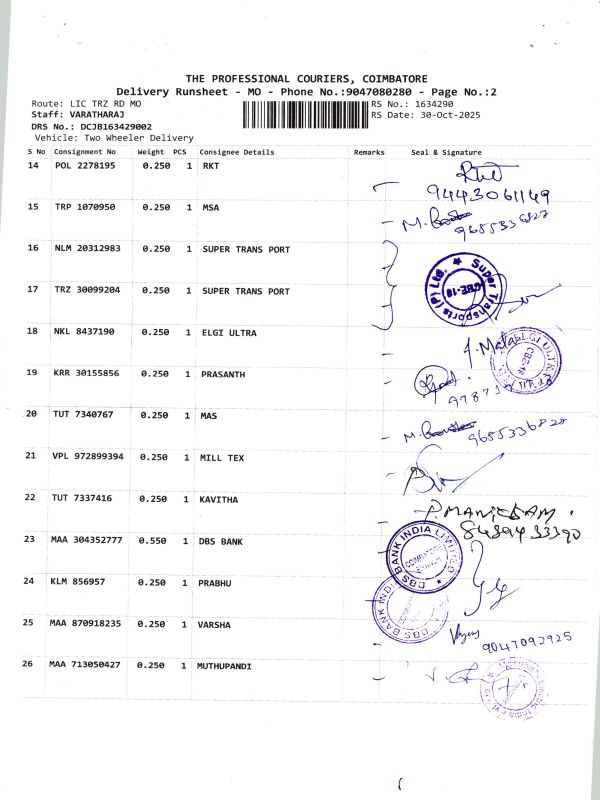 THE PROFESSIONAL COURIERS, COIMBATORE
Delivery Runsheet - MO - Phone No.:9047080280 - Page No.:2
Route: LIC TRZ RD MO RS No.: 1634290
Staff: VARATHARAJ RS Date: 30-Oct-2025
DRS No.: DCJB163429002
Vehicle: Two Wheeler Delivery
S No Consignment No Weight PCS Consignee Details Remarks Seal & Signature
14 POL 2278195 0.250 1 RKT
9443061149
15 TRP 1070950 0.250 1 MSA
9685336827
16 NLM 20312983 0.250 1 SUPER TRANS PORT
Super Transports (P) Ltd. CBE-18
17 TRZ 30099204 0.250 1 SUPER TRANS PORT
18 NKL 8437190 0.250 1 ELGI ULTRA
19 KRR 30155856 0.250 1 PRASANTH
20 TUT 7340767 0.250 1 MAS
9685336827
21 VPL 972899394 0.250 1 MILL TEX
22 TUT 7337416 0.250 1 KAVITHA
P.MANICKAM.
23 MAA 304352777 0.550 1 DBS BANK
BANK INDIA LIMITED
24 KLM 856957 0.250 1 PRABHU
25 MAA 870918235 0.250 1 VARSHA
9047092925
26 MAA 713050427 0.250 1 MUTHUPANDI